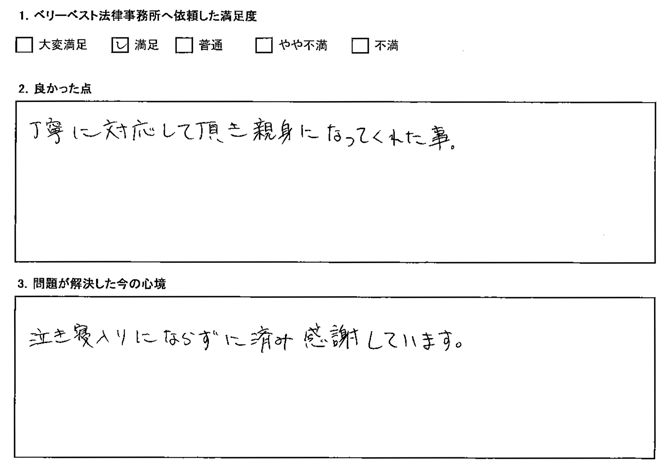 1. ベリーベスト法律事務所へ依頼した満足度
□ 大変満足 ☑ 満足 □ 普通 □ やや不満 □ 不満
2. 良かった点
丁寧に対応して頂き親身になってくれた事。
3. 問題が解決した今の心境
泣き寝入りにならずに済み感謝しています。